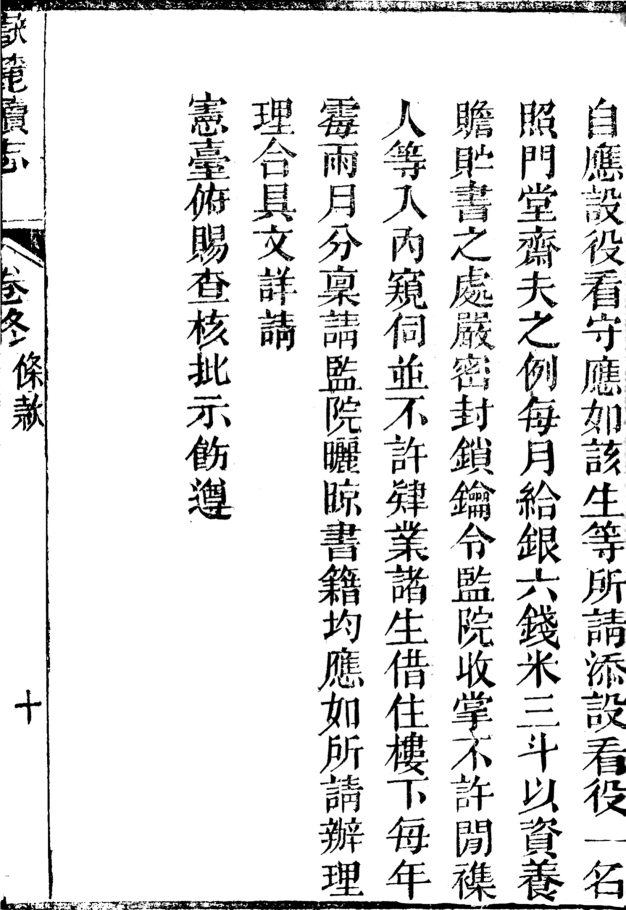 自應設役看守應如該生等所請添設看役一名
照門堂齋夫之例每月給銀六錢米三斗以資養
贍貯書之處嚴密封鎖鑰令監院收掌不許閒襍
人等入內窺伺並不許肄業諸生借住樓下每年
霉雨月分稟請監院曬晾書籍均應如所請辦理
理合具文詳請
憲臺俯賜查核批示飭遵
麓續志
卷終
條款
十